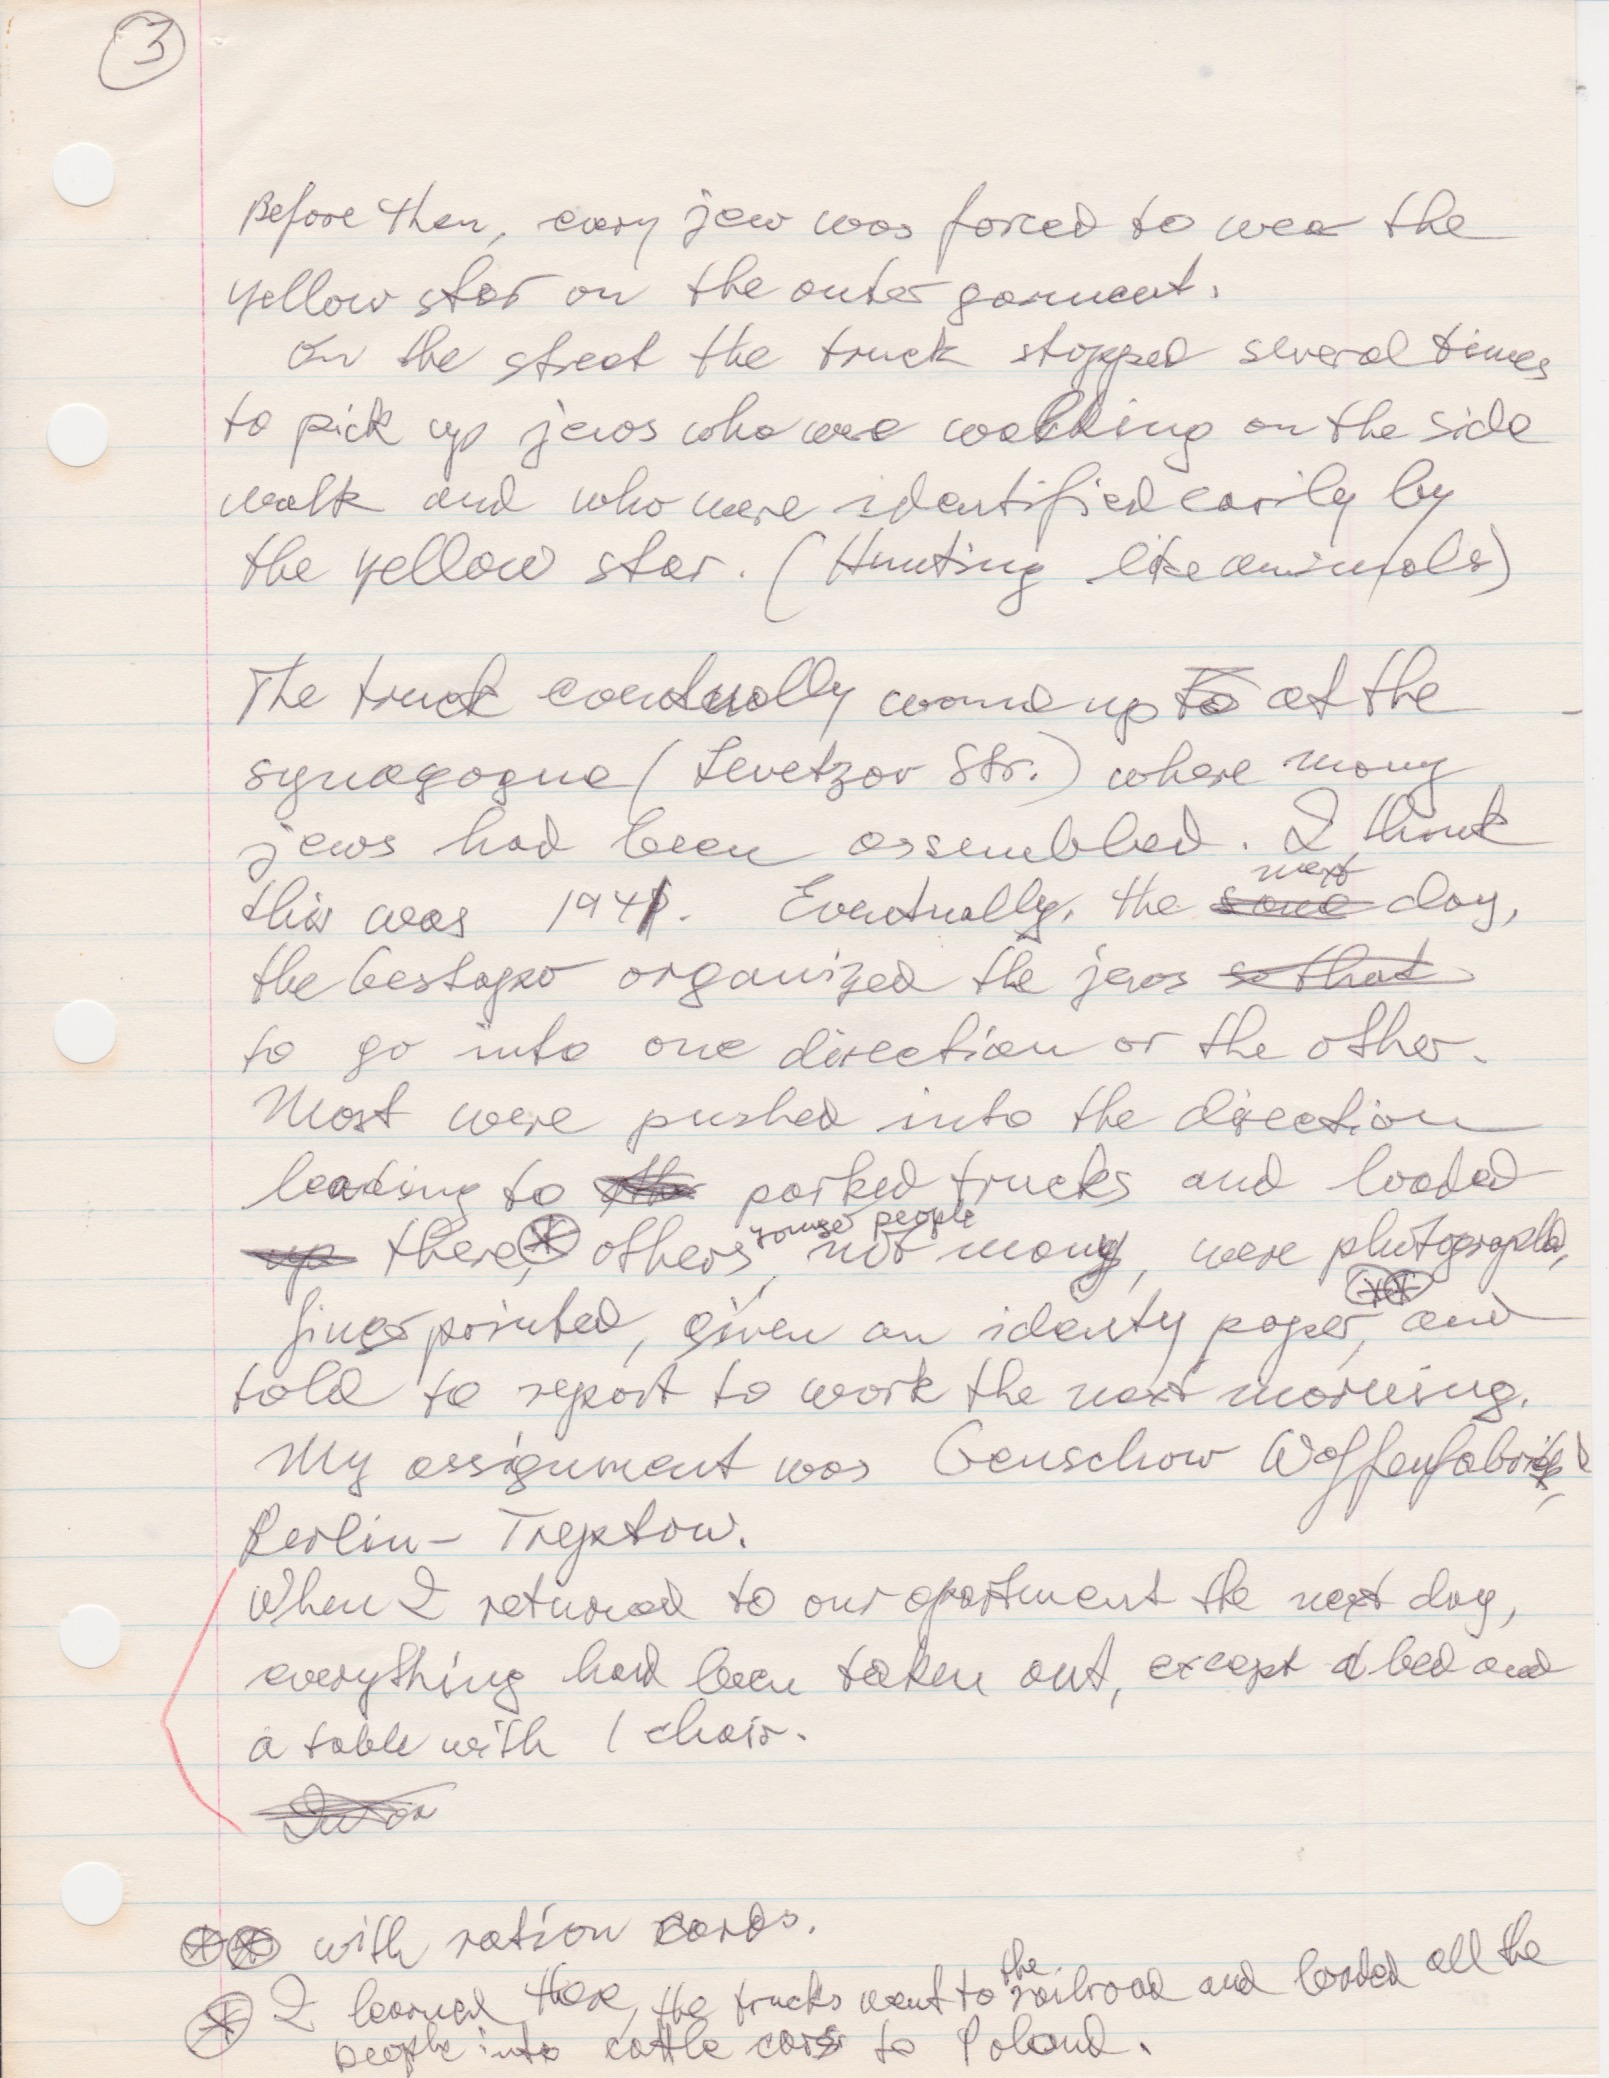 3
Before then, every jew was forced to wear the
yellow star on the outer garment.
On the street the truck stopped several times
to pick up jews who were walking on the side
walk and who were identified easily by
the yellow star. (Hunting like animals)
The truck eventually wound up to at the
synagogue (Levetzov Str.) where many
jews had been assembled. I think
this was 1941. Eventually, the same next day,
the Gestapo organized the jews so that
to go into one direction or the other.
Most were pushed into the direction
leading to the parked trucks and loaded
up there, * others younger people, not many, were photographed,
fingerprinted, given an identy paper, ** and
told to report to work the next morning.
My assignment was Genschow Waffenfabrik,
Berlin - Treptow.
When I returned to our apartment the next day,
everything had been taken out, except a bed and
a table with 1 chair.
** with ration cards.
* I learned there, the trucks went to the railroad and loaded all the
people into cattle cars to Poland.